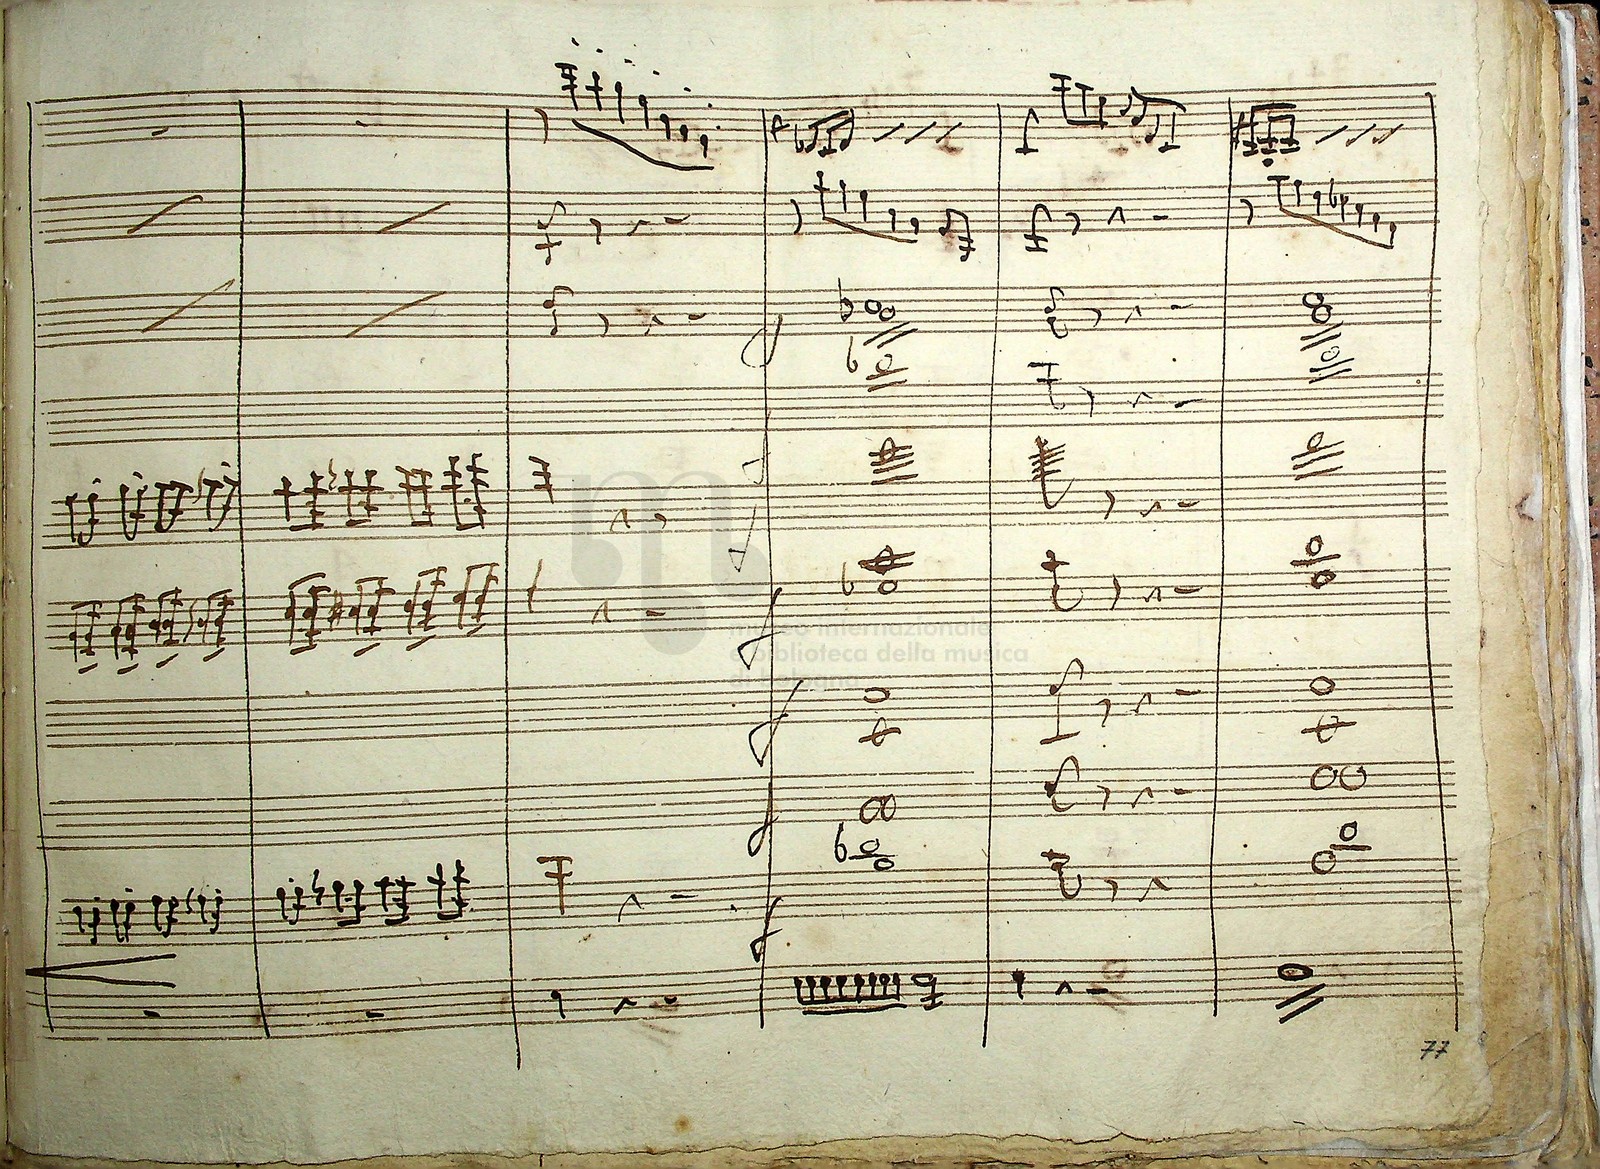 museo internazionale
e biblioteca della musica
di bologna
77